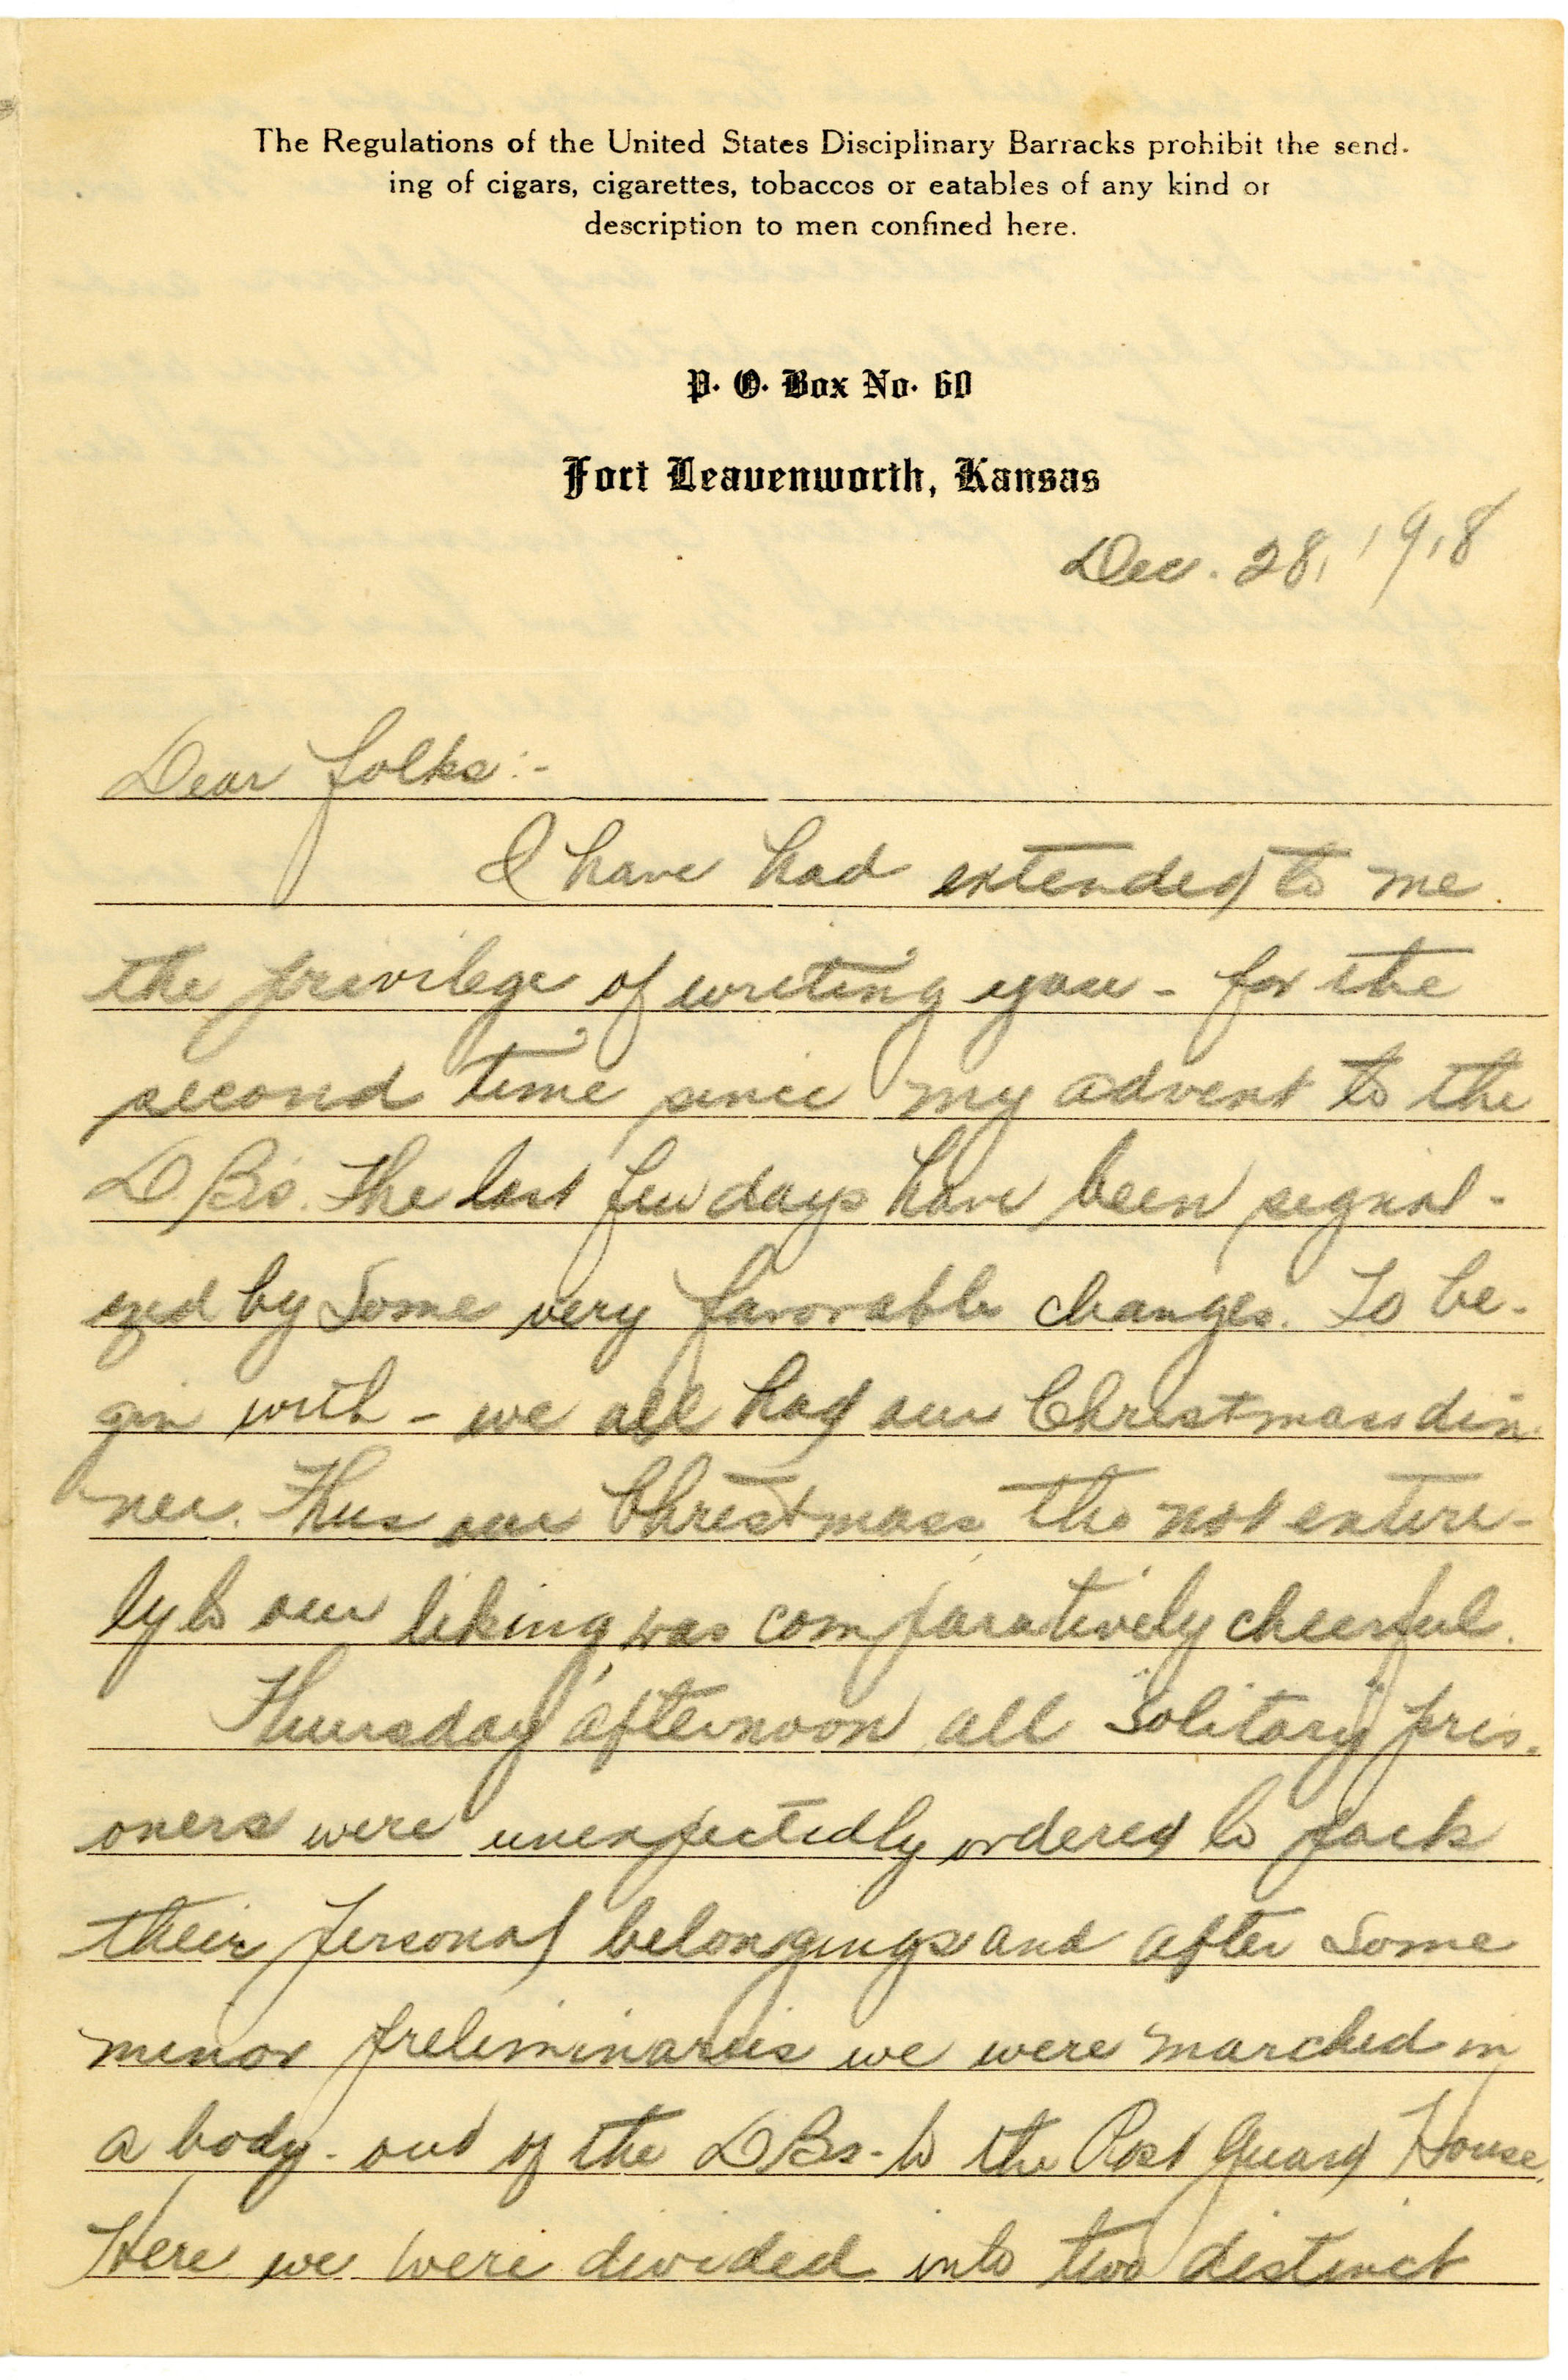 The Regulations of the United States Disciplinary Barracks prohibit the send-
ing of cigars, cigarettes, tobaccos or eatables of any kind or
description to men confined here.
P. O. Box No. 60
Fort Leavenworth, Kansas
Dec. 28, 1918
Dear folks:-
I have had extended to me
the privilege of writing you - for the
second time since my advent to the
D B's. The last few days have been signal-
ized by some very favorable changes. To be-
gin with - we all had our Christmass din-
ner. Thus our Christmass, tho not entire-
ly to our liking, was comparatively cheerful.
Thursday afternoon, all solitary pris-
oners were unexpectedly ordered to pack
their personal belongings and after some
minor preliminaries we were marched in
a body - out of the D Bs - to the Post Guard House.
Here we were divided into two distinct